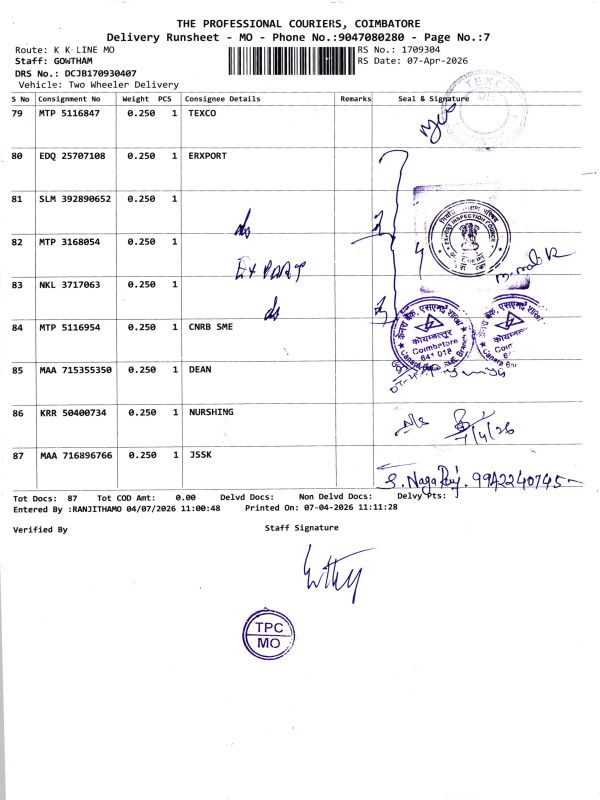 THE PROFESSIONAL COURIERS, COIMBATORE
Delivery Runsheet - MO - Phone No.:9047080280 - Page No.:7
Route: K K LINE MO
RS No.: 1709304
Staff: GOWTHAM
RS Date: 07-Apr-2026
DRS No.: DCJB170930407
Vehicle: Two Wheeler Delivery
S No Consignment No Weight PCS Consignee Details Remarks Seal & Signature
79 MTP 5116847 0.250 1 TEXCO
80 EDQ 25707108 0.250 1 ERXPORT
81 SLM 392890652 0.250 1
do
82 MTP 3168054 0.250 1
EXPORT
83 NKL 3717063 0.250 1
do
84 MTP 5116954 0.250 1 CNRB SME
कोयम्बत्तूर
Coimbatore
641 018
85 MAA 715355350 0.250 1 DEAN
86 KRR 50400734 0.250 1 NURSHING
7/4/26
87 MAA 716896766 0.250 1 JSSK
S. Naga Raj. 9942240745
Tot Docs: 87 Tot COD Amt: 0.00 Delvd Docs: Non Delvd Docs: Delvy Pts:
Entered By :RANJITHAMO 04/07/2026 11:00:48 Printed On: 07-04-2026 11:11:28
Verified By Staff Signature
TPC
MO